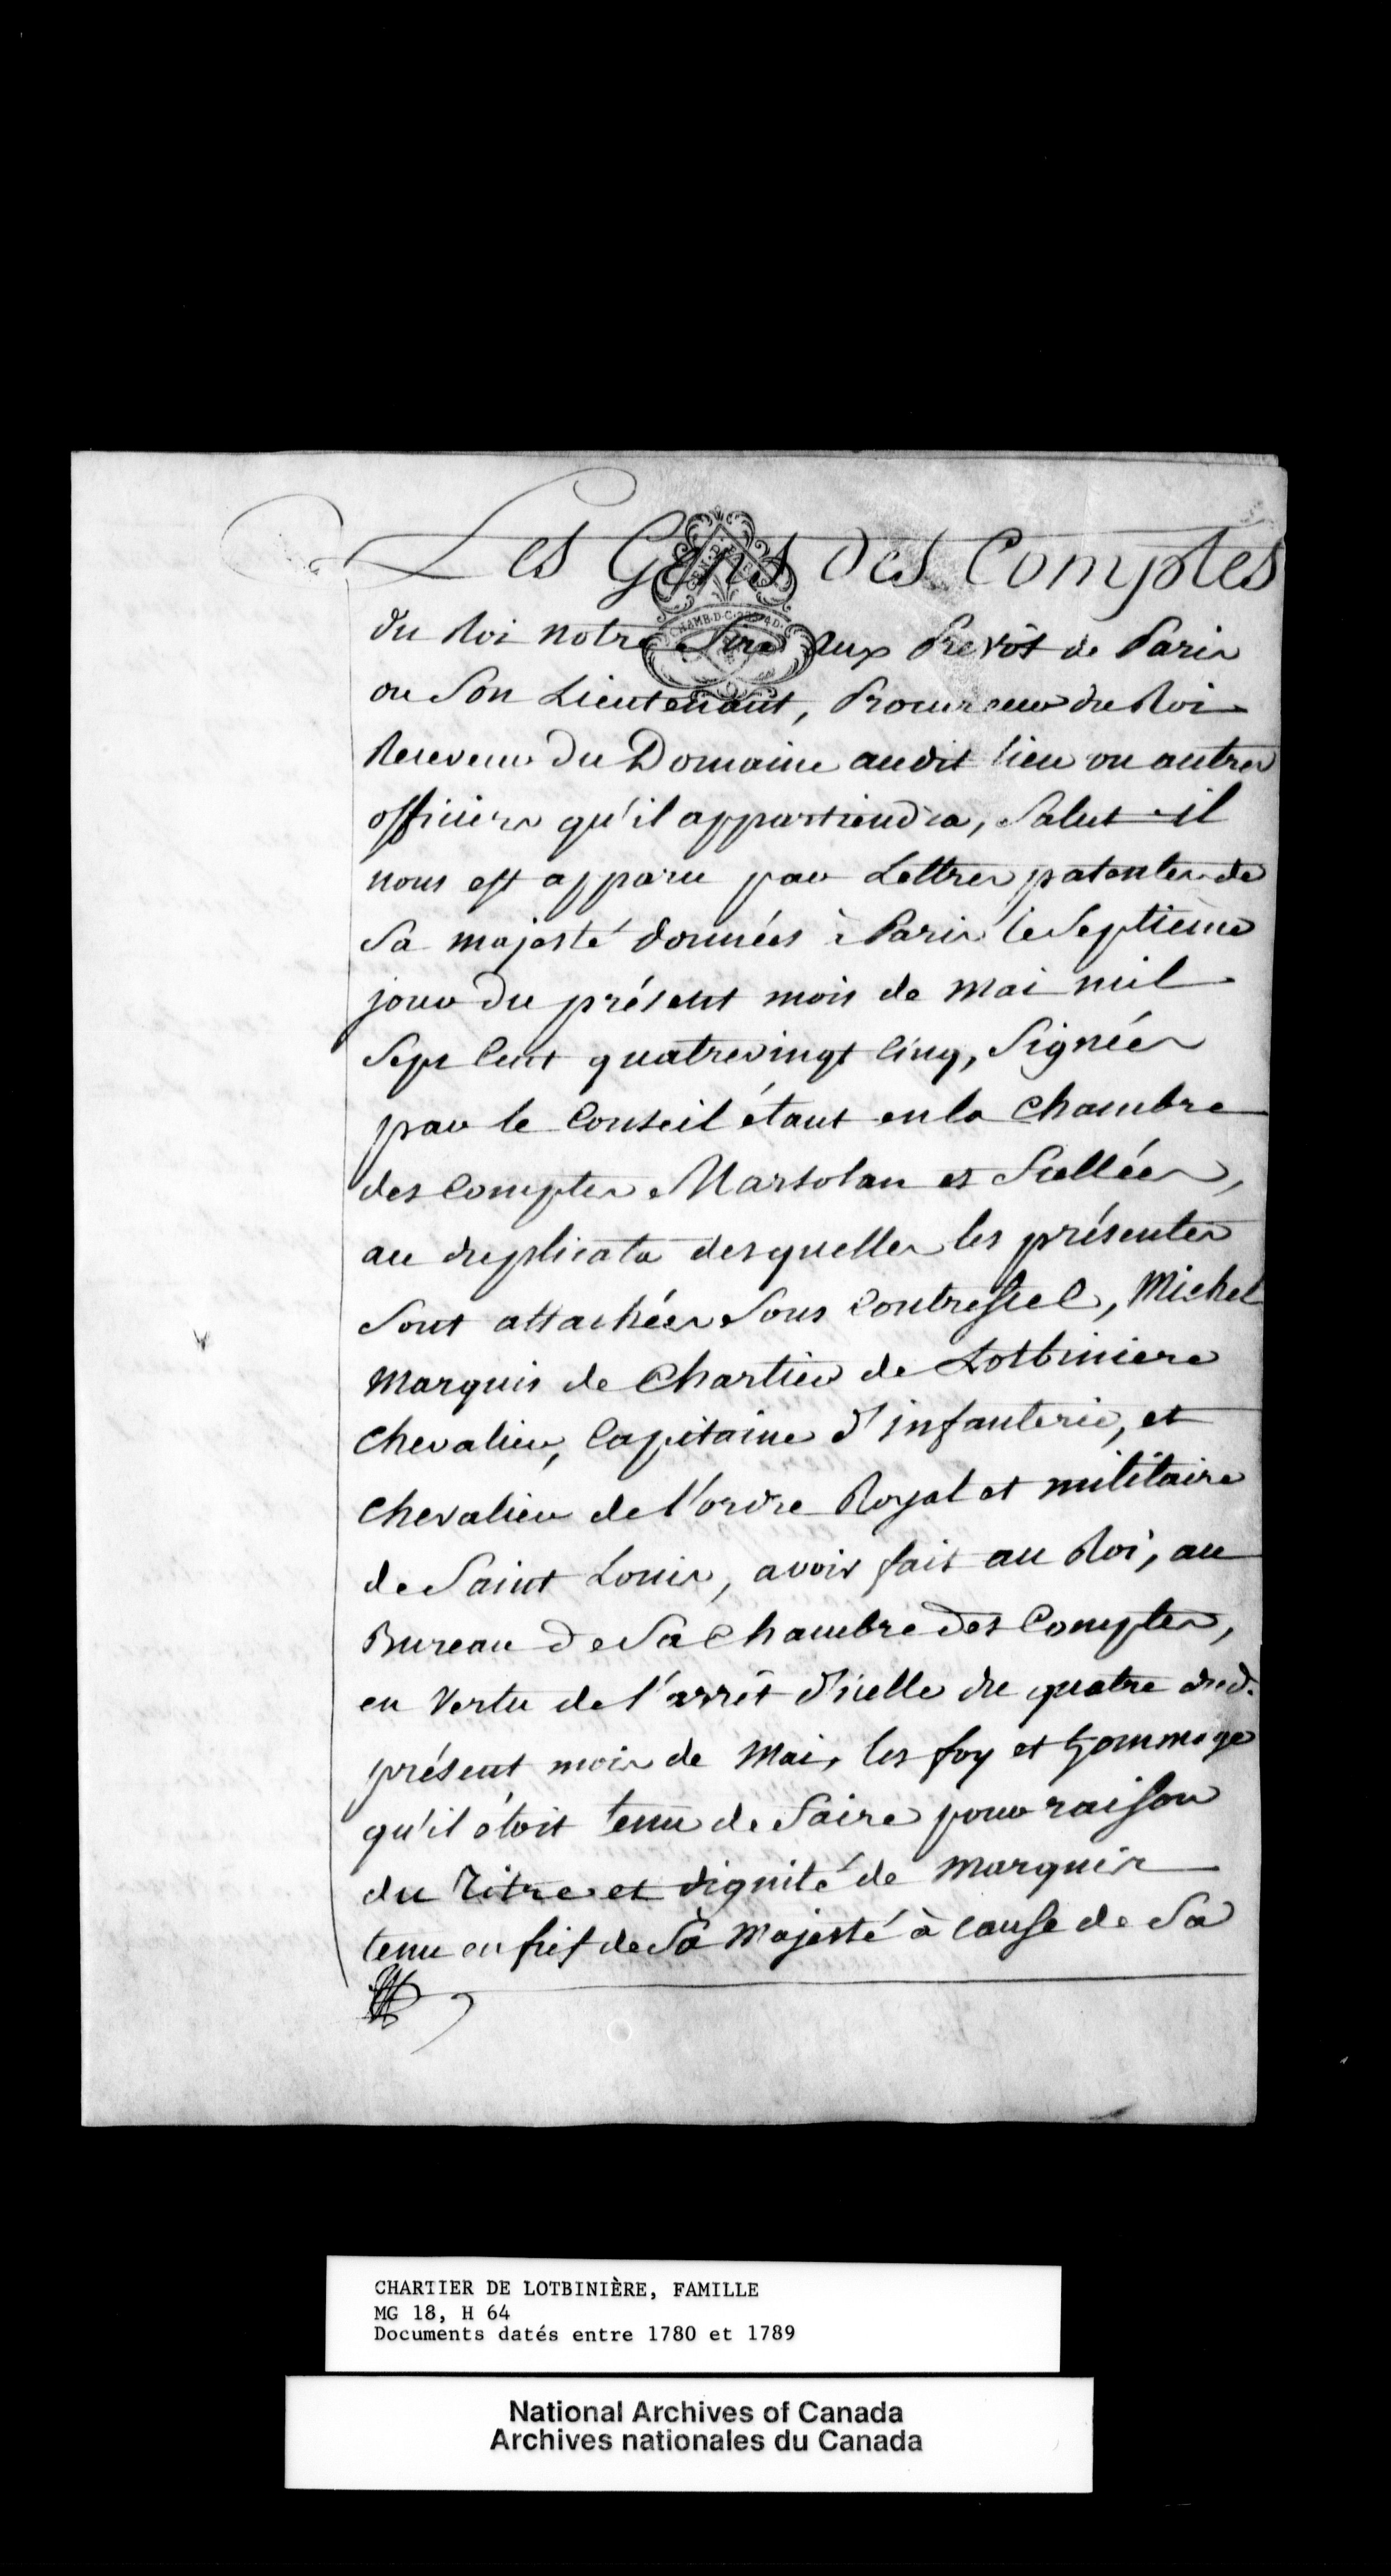 Les Gens des Comptes
du Roi notre Sire aux Prevôt de Paris
ou Son Lieutenant, Procureur du Roi
Receveur du Domaine audit lieu ou autres
officiers qu'il appartiendra, Salut il
nous est apparu par Lettres patentes de
Sa majesté données à Paris le Septième
jour du présent mois de Mai mil
Sept Cent quatrevingt Cinq, Signées
par le Conseil étant en la Chambre
des Comptes Marsolan et Scellées,
au duplicata desquelles les présentes
Sont attachées Sous Contrescel, Michel
Marquis de Chartier de Lotbiniere
Chevalier, Capitaine d'infanterie, et
Chevalier de l'ordre Royal et militaire
de Saint Louis, avoir fait au Roi, au
Bureau de Sa Chambre des Comptes,
en Vertu de l'arrêt d'icelle du quatre dud.
présent mois de Mai, les foy et hommage
qu'il étoit tenu de faire pour raison
du Titre et dignité de Marquis
tenu en fief de Sa Majesté à cause de Sa
CHARTIER DE LOTBINIÈRE, FAMILLE
MG 18, H 64
Documents datés entre 1780 et 1789
National Archives of Canada
Archives nationales du Canada